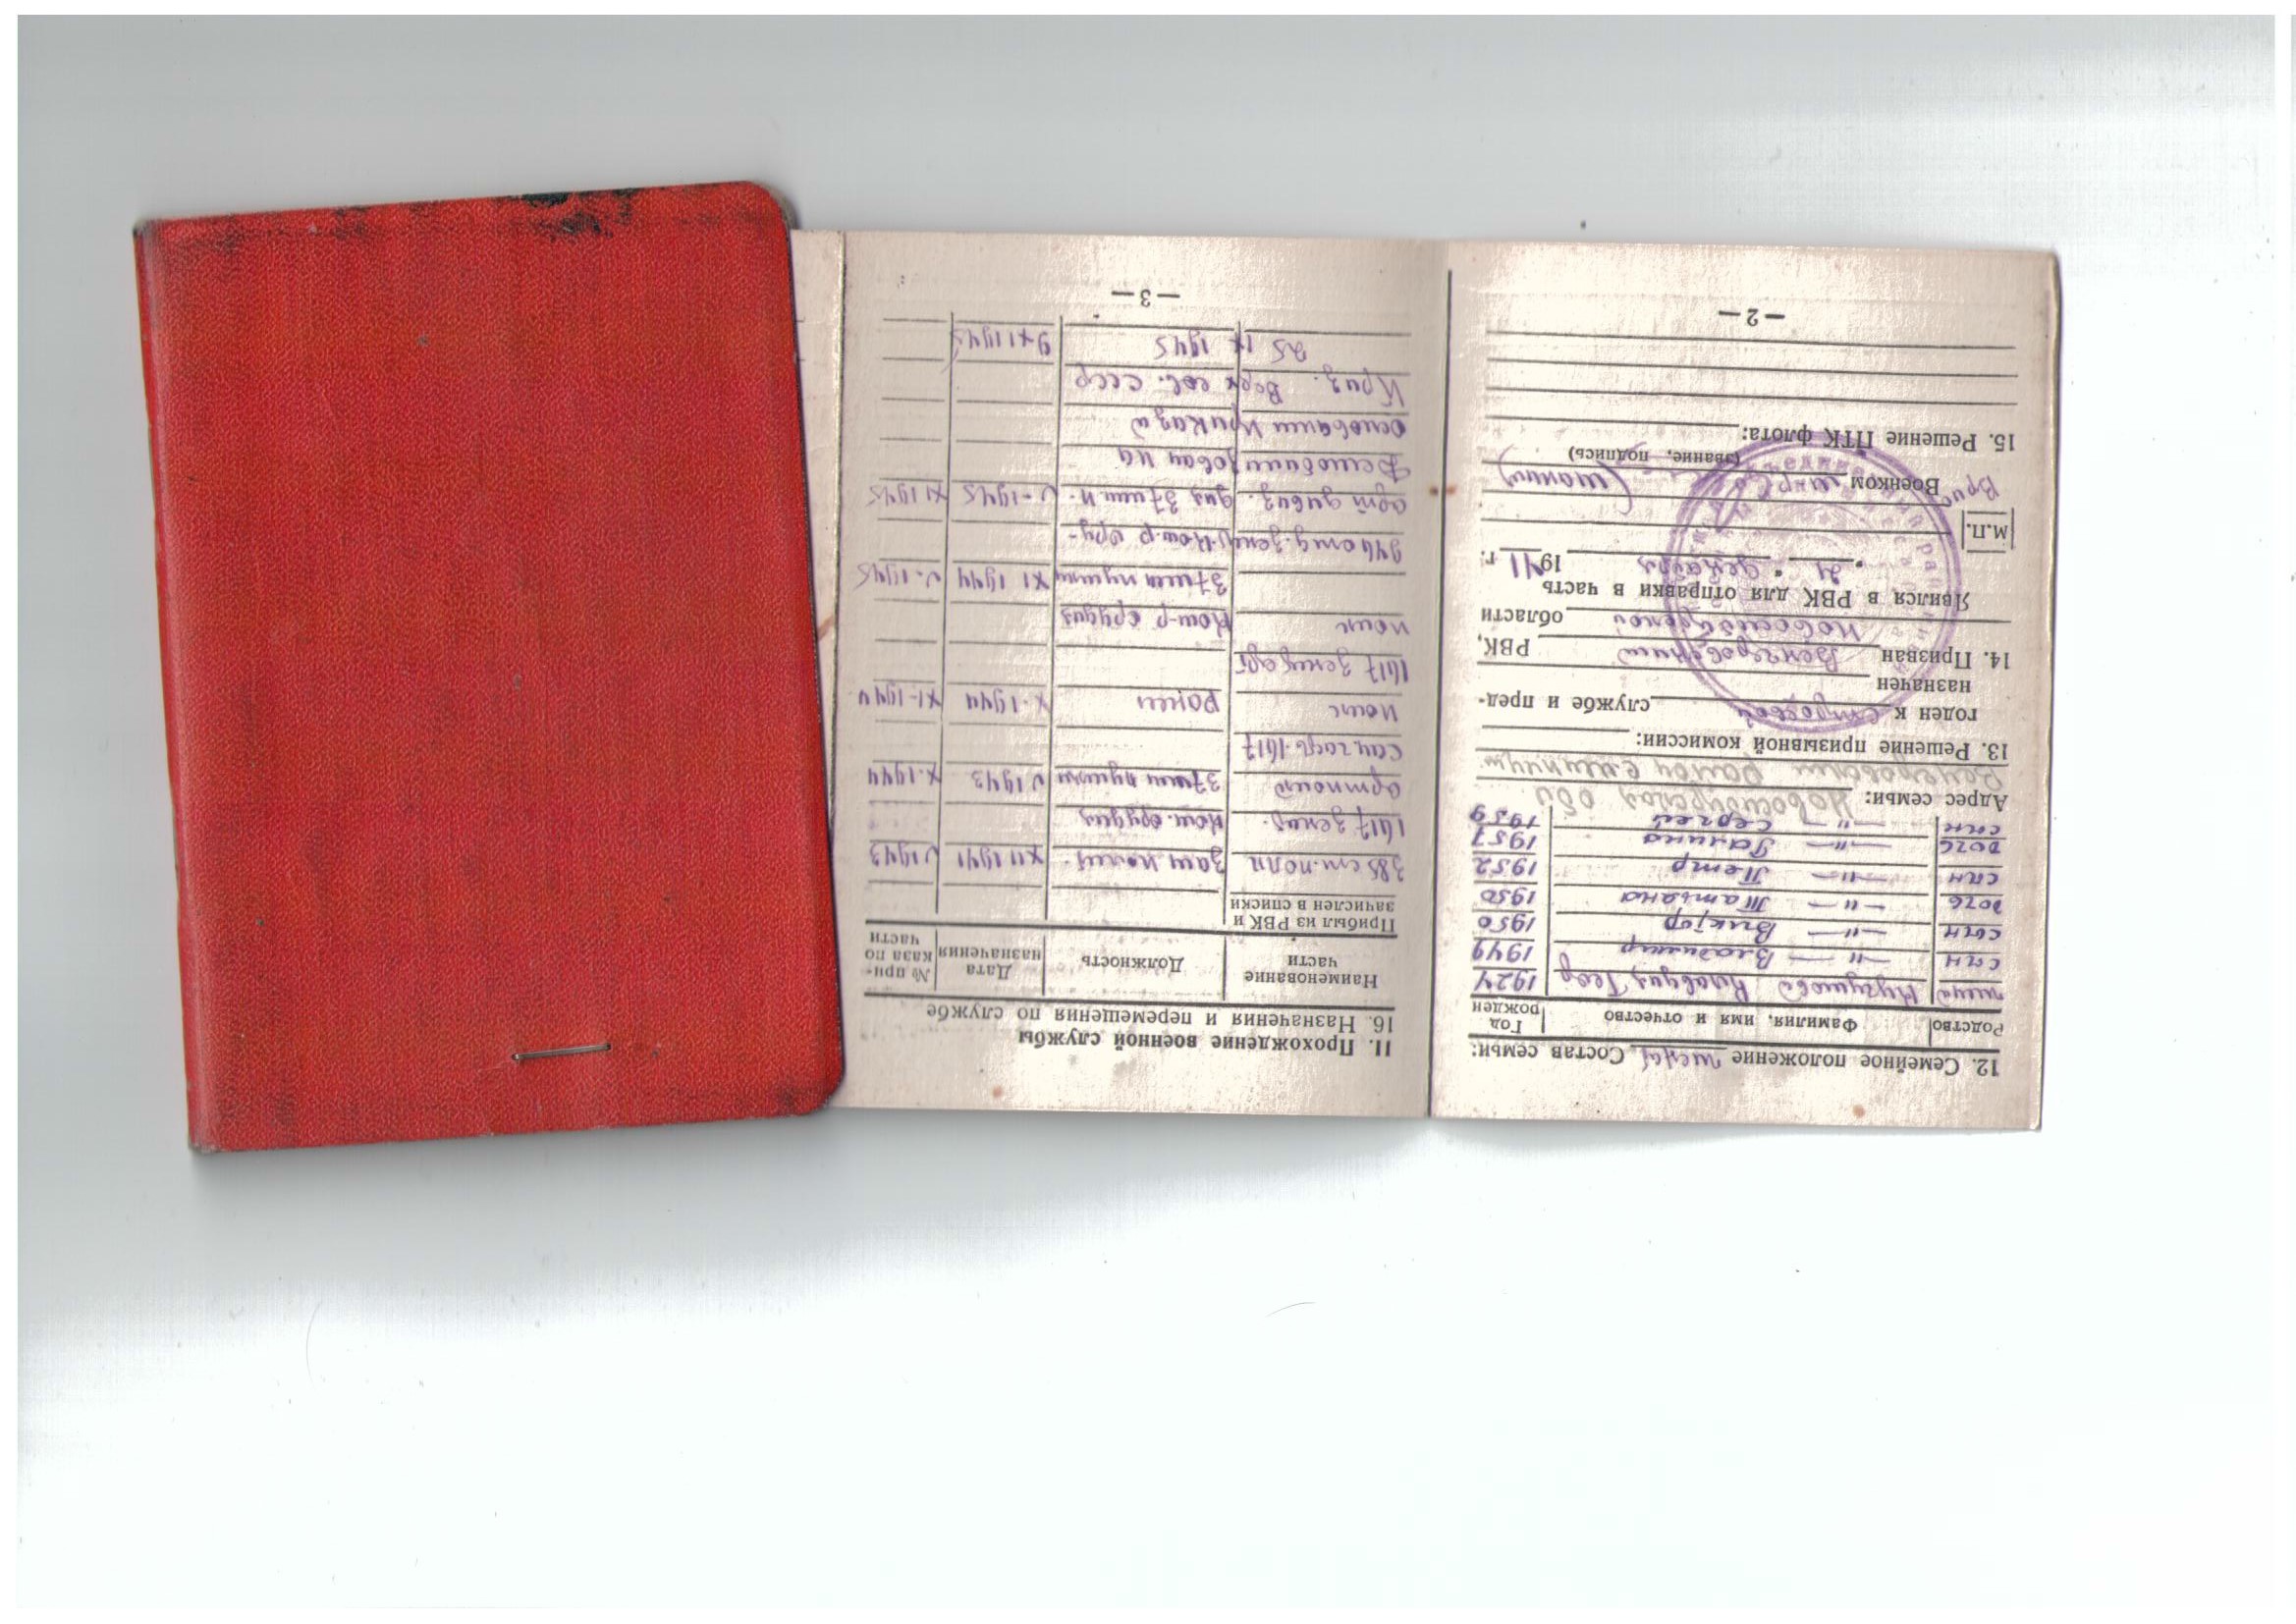 12. Семейное положение женат Состав семьи:
Родство Фамилия, имя и отчество Год рожден
жена Клавдия 1924
сын —"— Владимир 1949
сын —"— Виктор 1950
дочь —"— Татьяна 1950
сын —"— Петр 1952
дочь —"— Галина 1957
сын —"— Сергей 1959
Адрес семьи: Новосибирская обл
Венгеровский район
13. Решение призывной комиссии:
годен к строевой службе и пред-
назначен
14. Призван Венгеровский РВК,
Новосибирской области
Явился в РВК для отправки в часть
" 21 " декабря 1941 г.
М.П.
Военком
(звание, подпись)
15. Решение ПТК флота:
— 2 —
II. Прохождение военной службы
16. Назначения и перемещения по службе
Наименование части Должность Дата назначения № при- каза по части
Прибыл из РВК и
зачислен в списки
385 ст. полк XII 1941 V 1943
1617 зенит. ком. орудия
артполк 37 мм пушки V 1943 X. 1944
сан. часть 1617
полк ранен X-1944 XI-1944
1617 зен арт
полк ком-р орудия
37 мм пушки XI 1944 V-1945
ком-р ору-
арт дивиз. дия 37 мм п. V-1945 XI 1945
Демобилизован на
основании приказа
През. Верх сов. СССР
25 IX 1945 9 XI 1945
— 3 —